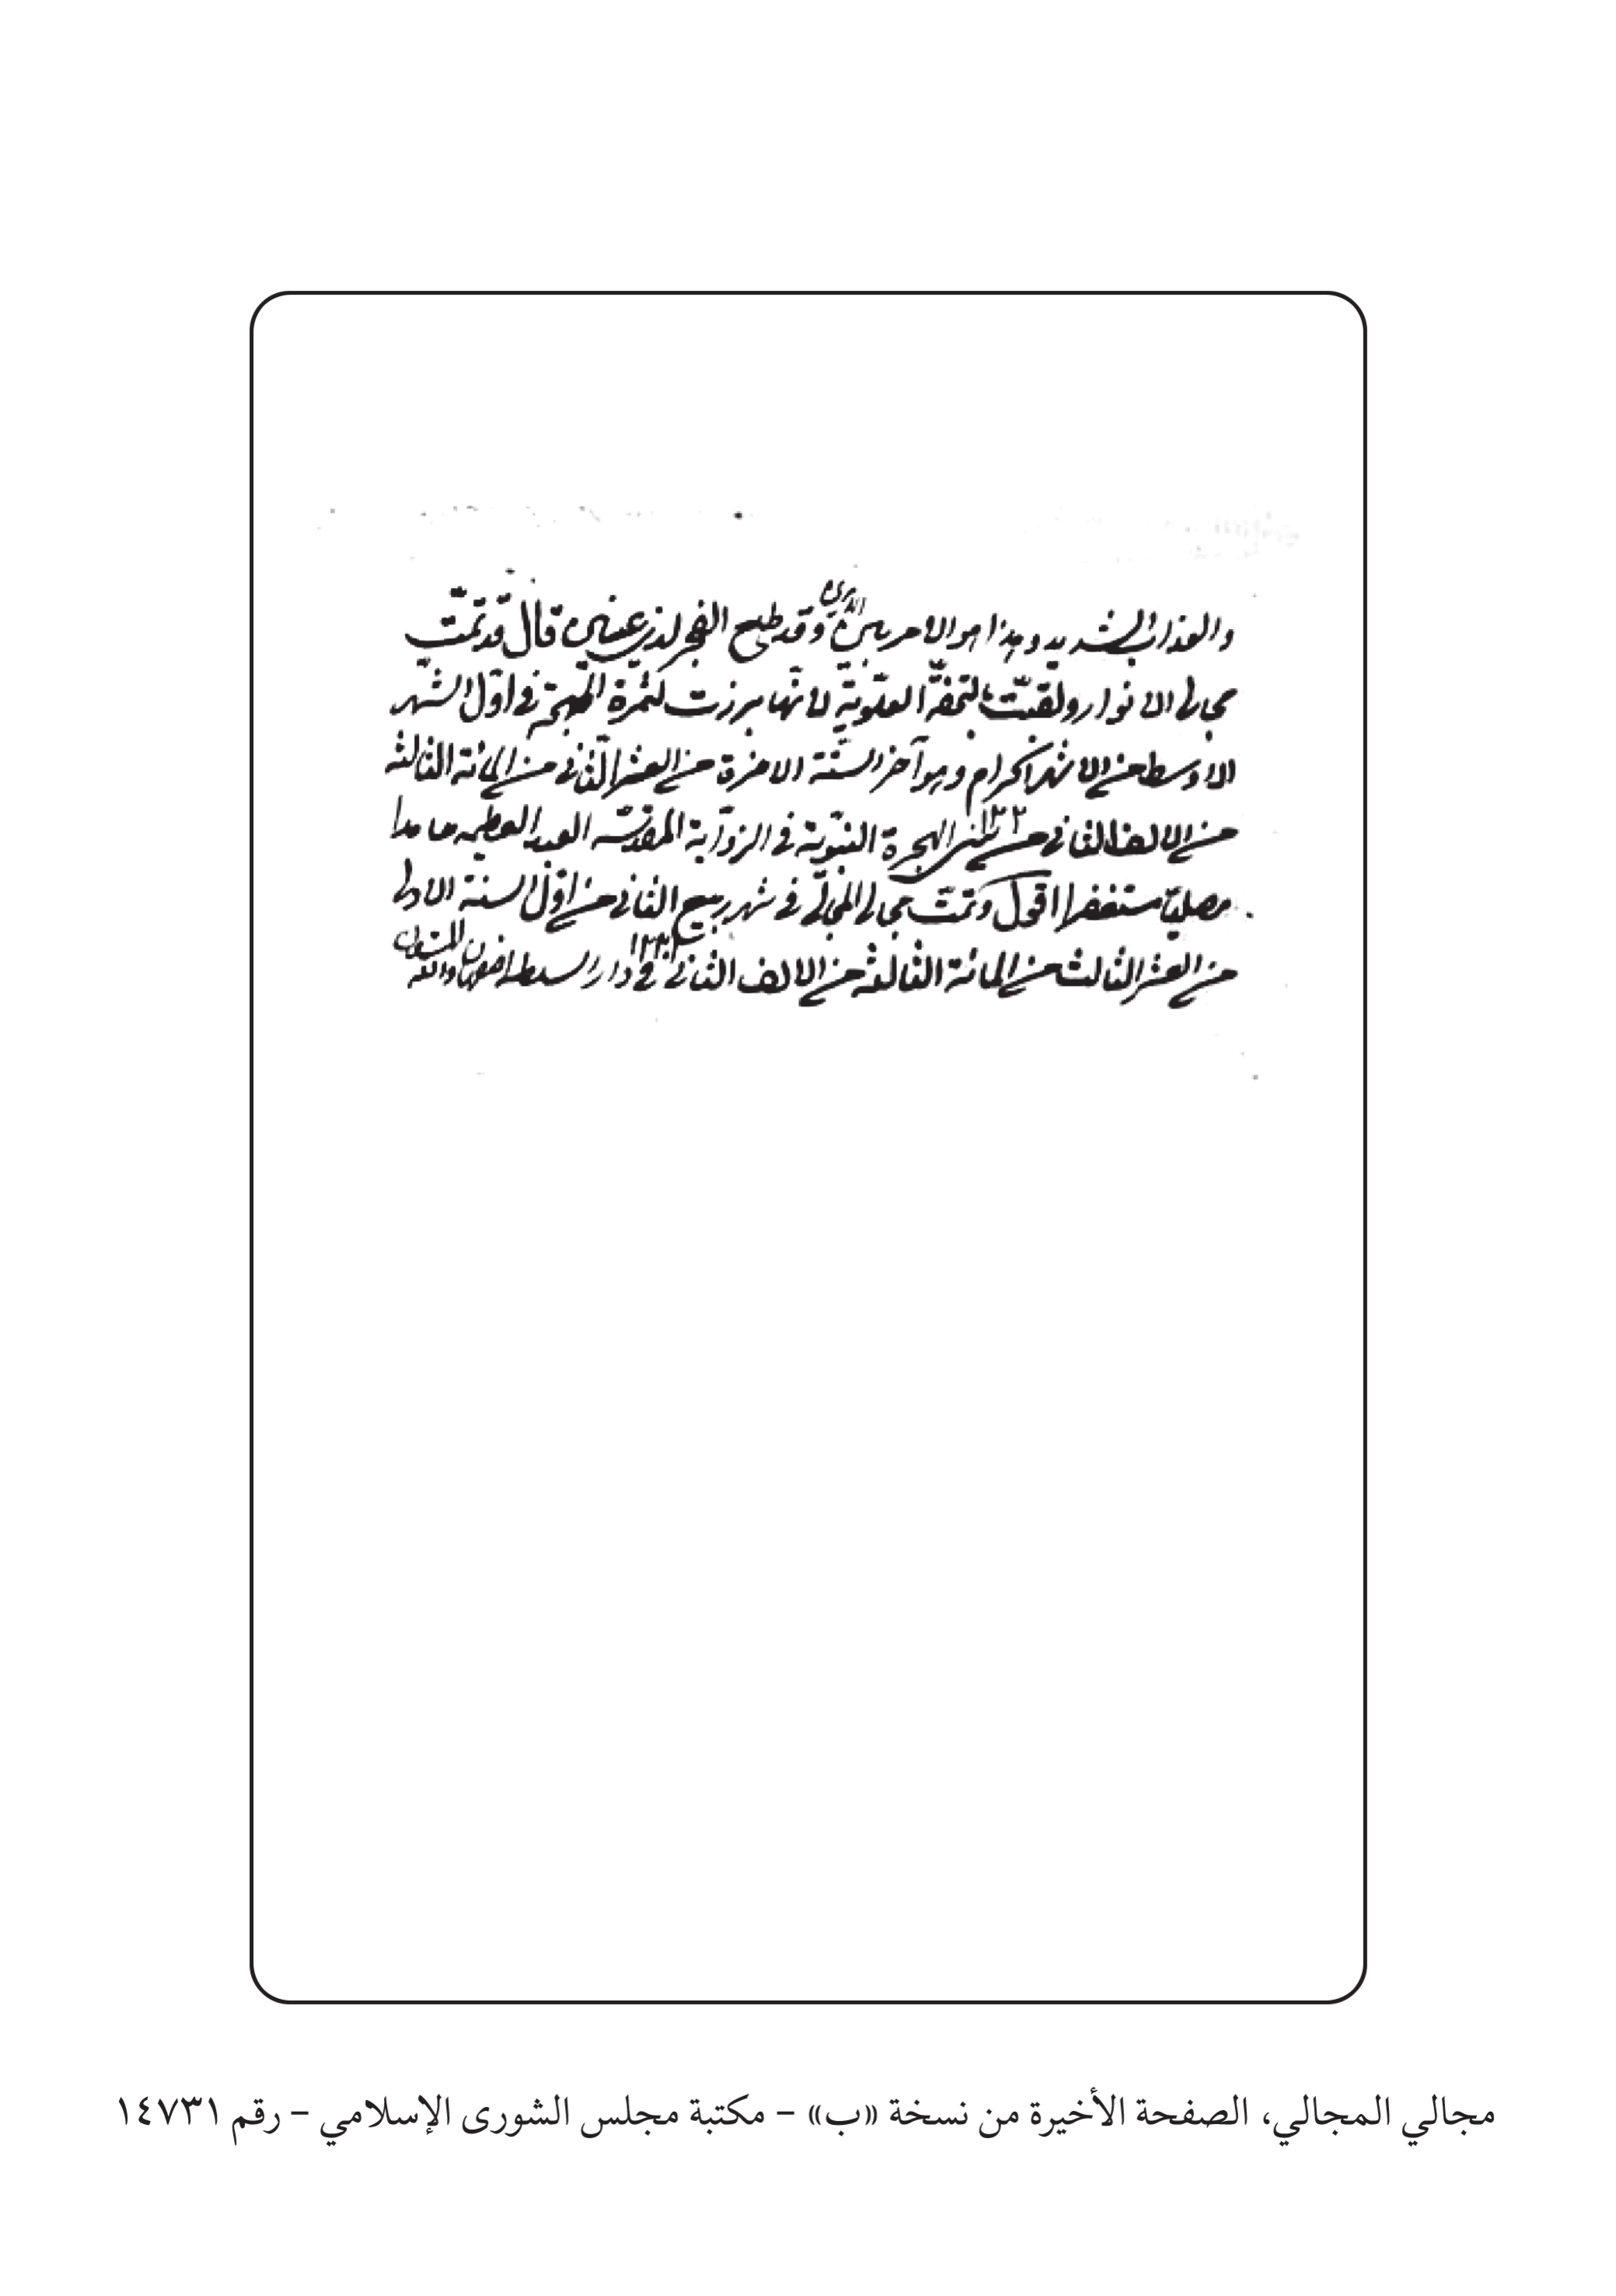 والعذاب الشديد وهذا هو الامر وقد طلع الفجر لذي عينين قال قد تمّت
مجالي الانوار ولقبت بالتحفة العلوية لانها برزت لثمرة المهجة في اوّل الشهر
الاوسط من الاشهر الحرام وهو آخر السنة الاخرة من العشر الثاني من المائة الثالثة
من الالف الثاني من الهجرة النبوية في الزوراية المقدسة العبد العظيمه حامدا
مصليا مستغفرا اقول وتمّت مجالي المجالي في شهر ربيع الثاني من اوّل السنة الاولى
من العشر الثالث من المائة الثالثة من الالف الثاني في دار السلطنة اصفهان والله المستعان
مجالي المجالي، الصفحة الأخيرة من نسخة «ب» – مكتبة مجلس الشورى الإسلامي – رقم ١٤٧٣١